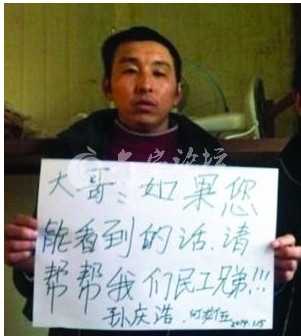 大哥：如果您
能看到的话.请
帮帮我们民工兄弟!!!
孙庆浩